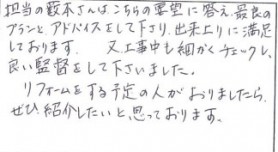 担当の薮本さんはこちらの要望に答え、最良の
プランと、アドバイスをして下さり、出来上りに満足
しております。 又工事中も細かくチェックし、
良い監督をして下さいました。
リフォームをする予定の人がおりましたら、
ぜひ紹介したいと思っております。